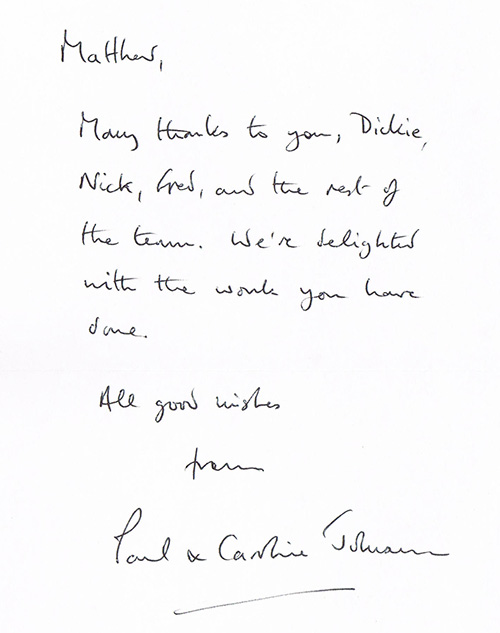 Matthew,
Many thanks to you, Dickie,
Nick, Fred, and the rest of
the team. We're delighted
with the work you have
done.
All good wishes
from
Paul & Caroline Johnson